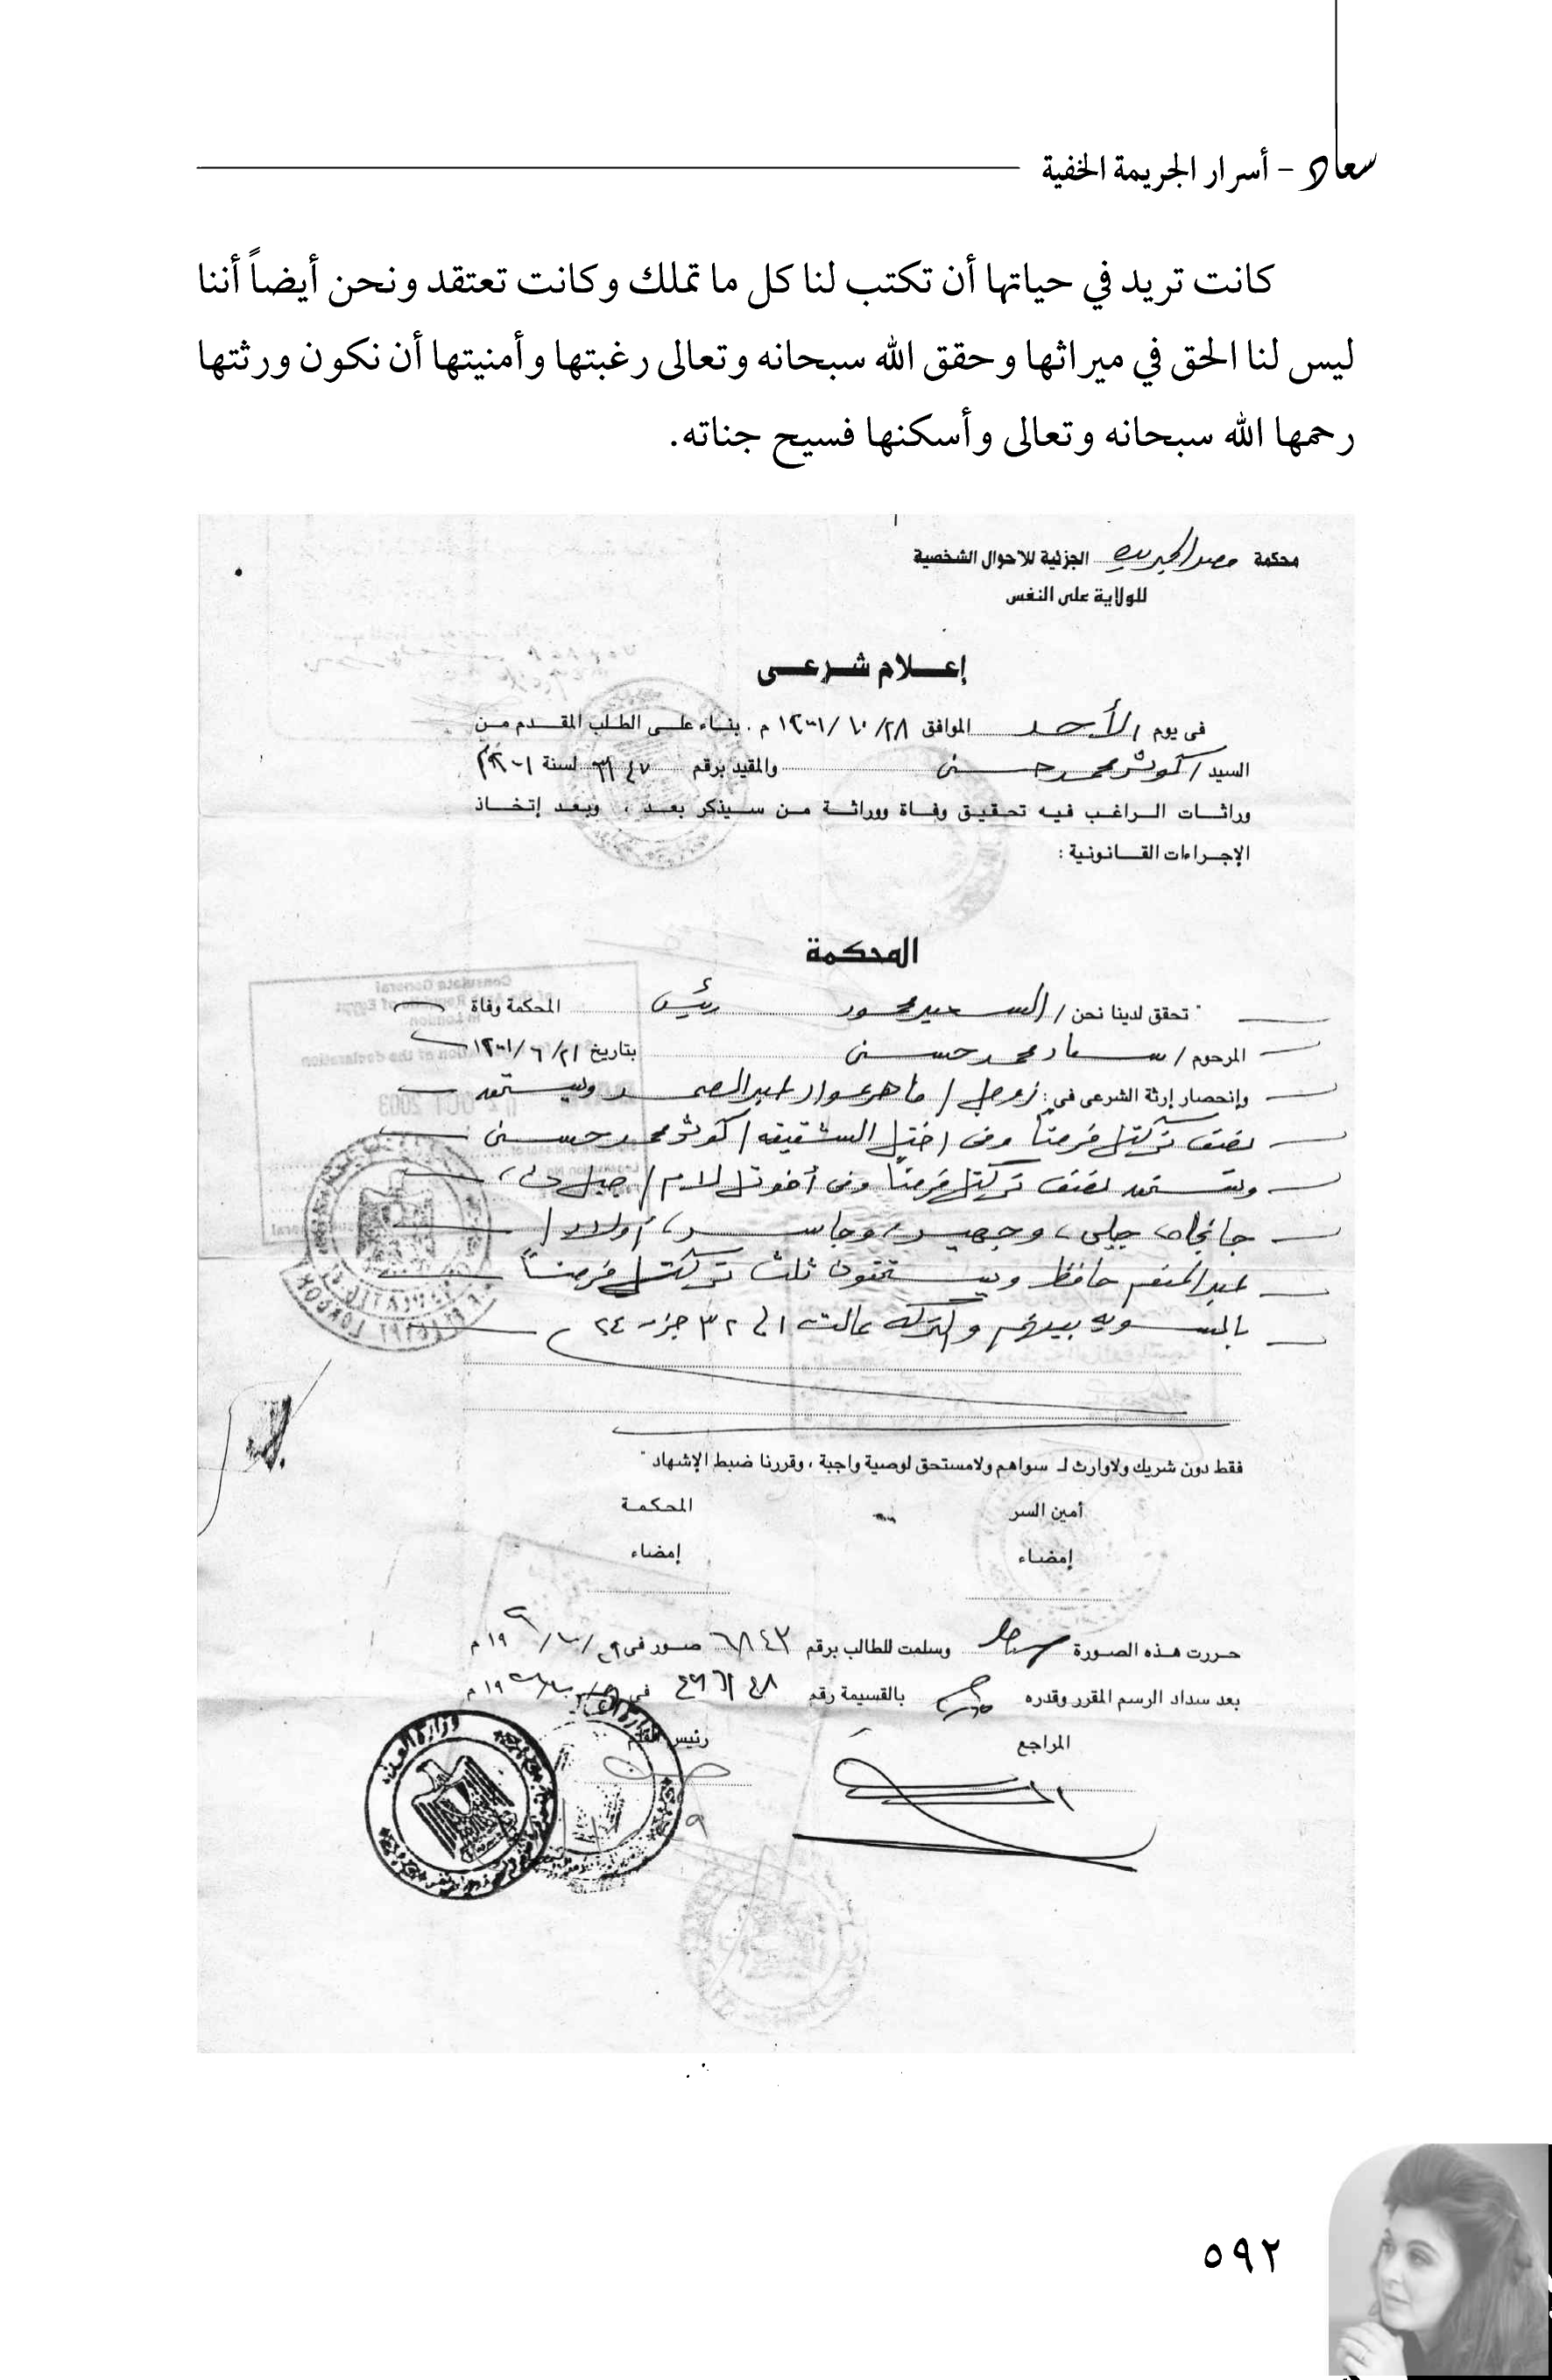 سعاد - أسرار الجريمة الخفية
كانت تريد في حياتها أن تكتب لنا كل ما تملك وكانت تعتقد ونحن أيضاً أننا
ليس لنا الحق في ميراثها وحقق الله سبحانه وتعالى رغبتها وأمنيتها أن نكون ورثتها
رحمها الله سبحانه وتعالى وأسكنها فسيح جناته.
محكمة مصر الجديدة الجزئية للأحوال الشخصية
للولاية على النفس
إعلام شرعى
فى يوم الأحد الموافق ٢٨/ ١٠/ ٢٠٠١ م . بناء على الطلب المقدم من
السيد / كوثر محمد حسنى والمقيد برقم لسنة ٢٠٠١
وراثات الراغب فيه تحقيق وفاة ووراثة من سيذكر بعد ، وبعد إتخاذ
الإجراءات القانونية :
المحكمة
" تحقق لدينا نحن / السعيد محمود رئيس المحكمة وفاة
المرحوم / سعاد محمد حسنى بتاريخ ٢١/ ٦/ ٢٠٠١
وإنحصار إرثة الشرعى فى : زوجها / ماهر عواد عبد الصمد ويستحق
نصف تركتها فرضاً وفى أختها الشقيقه / كوثر محمد حسنى
وتستحق نصف تركتها فرضاً وفى أخوتها لام /
جانجاه، جيلى، وجهير، وجاسر، أولاد /
عبد المنعم حافظ ويستحقون ثلث تركتها فرضاً
بالسويه بينهم والتركه عالت الى ٣٢ جزء ٢٤
فقط دون شريك ولاوارث لـ سواهم ولامستحق لوصية واجبة ، وقررنا ضبط الإشهاد "
أمين السر المحكمة
إمضاء إمضاء
حررت هذه الصورة وسلمت للطالب برقم ٦٨٤٣ صور فى ١٩ م
بعد سداد الرسم المقرر وقدره بالقسيمة رقم فى ١٩ م
المراجع رئيس القلم
وزارة العدل
٥٩٢